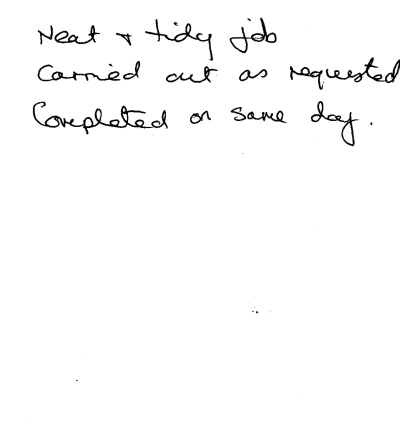 Neat + tidy job
Carried out as requested
Completed on same day.